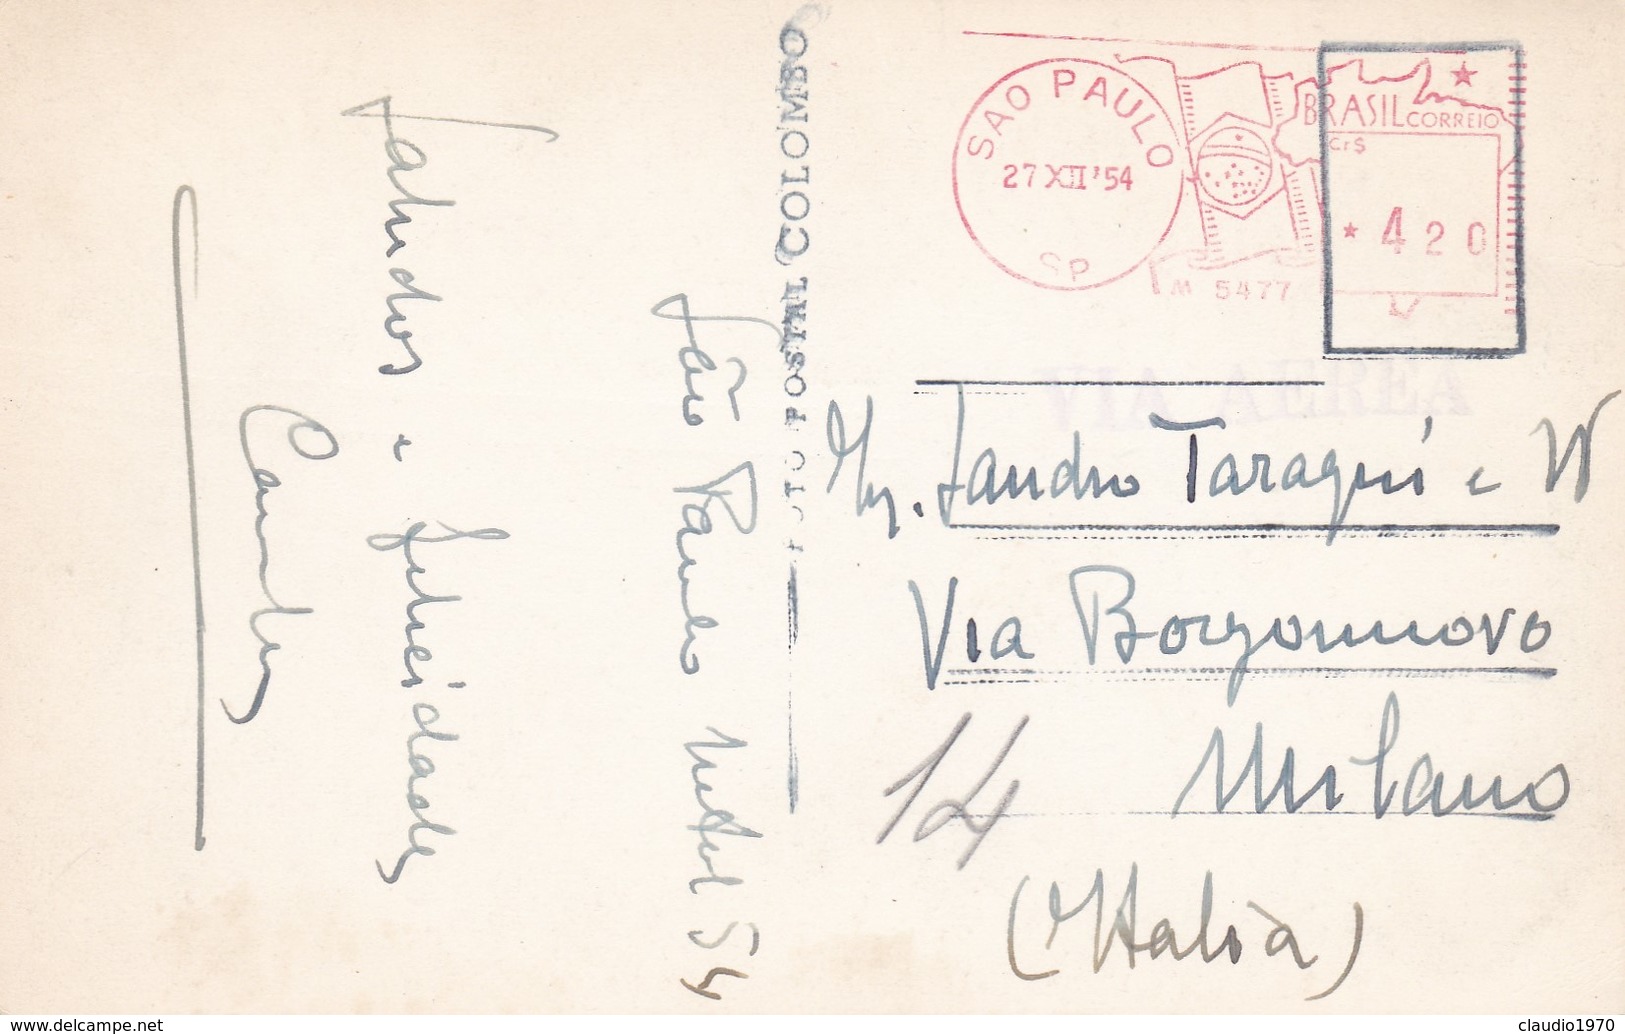 SAO PAULO
27 XII '54
SP
M 5477
BRASIL CORREIO
Cr$
* 4 20
VIA AEREA
FOTO POSTAL COLOMBO
São Paulo Natal 54
Saludos e felicidades
Sandro Taragni e
Via Borgonuovo
14 Milano
(Italia)
www.delcampe.net
claudio1970